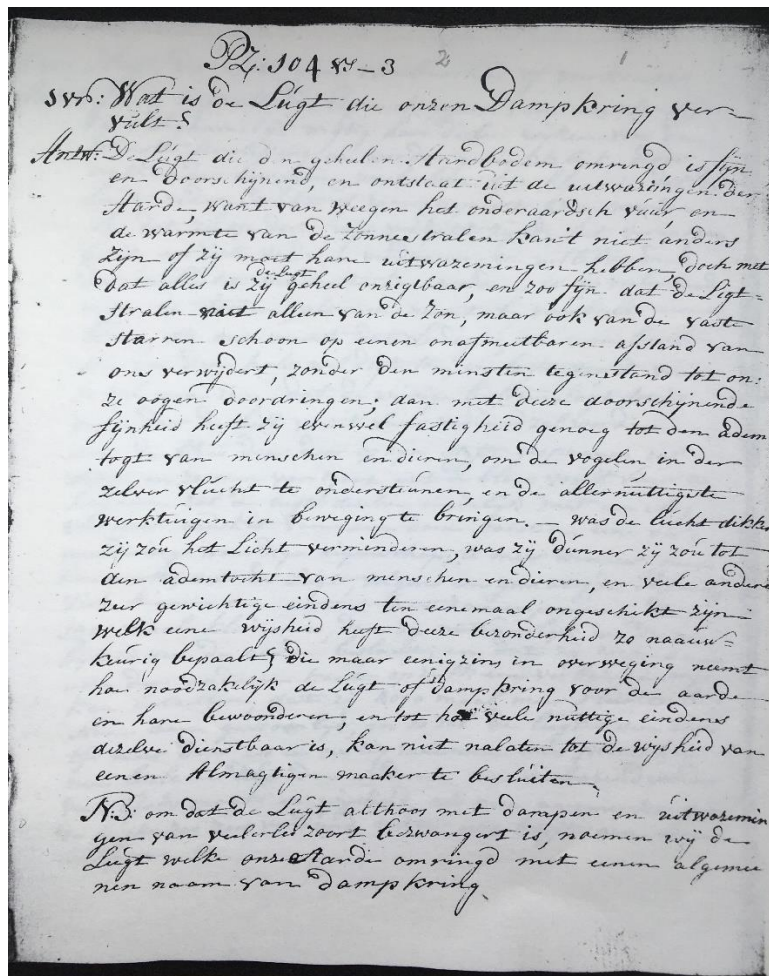 Pz: 104 vs – 3 2 1
1 vr: Wat is de Lúgt die onzen Dampkring ver=
vúlt?
Antw: De Lúgt die d n geheelen Aardbodem omringd is fijn
en doorschijnend, en ontstaat úit de uitwazingen der
Aarde, want van weegen het onderaardsch vúúr, en
de warmte van de Zonnestralen kan't niet anders
zijn of zij moet hare uitwazemingen hebben, doch met
dat alles is zij de lugt geheel onzigtbaar, en zoo fijn dat de Ligt=
stralen niet alleen van de Zon, maar ook van de vaste
starren schoon op eenen onafmeetbaren afstand van
ons verwijdert, zonder den minsten tegenstand tot on:
ze oogen doordringen; dan met deeze doorschijnende
fijnheid heeft zij evenwel fastigheid genoeg tot den adem
togt van menschen en dieren, om de vogelen in der
zelver vlúcht te ondersteúnen, en de allernúttigste
werktúigen in beweging te brengen. – was de lúcht dikke
zij zoú het Licht verminderen, was zij dúnner zij zoú tot
den ademtocht van menschen en dieren, en veele andere
zeer gewichtige eindens ten eenemaal ongeschikt zijn
welk eene wijsheid heeft deeze bezonderheid zo naaúw=
keúrig bepaalt? die maar eenigzins in overweging neemt
hoe noodzakelijk de Lúgt of dampkring voor de aarde
en hare bewoonderen, en tot hoe veele nuttige eindens
dezelve dienstbaar is, kan niet nalaten tot de wijsheid van
eenen Almagtigen maaker te beslúiten.
NB: om dat de Lúgt althoos met dampen en úitwazemin
gen van veelerlei zoort bezwangert is, noemen wij de
Lúgt welke onze Aarde omringd met eenen algemee
nen naam van dampkring.